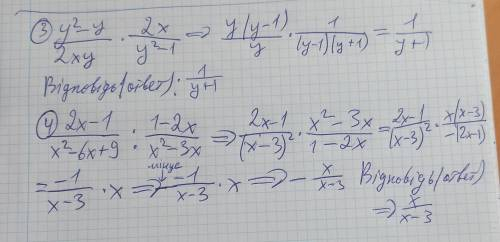 ③ (y²-y)/(2xy) · (2x)/(y²-1) ⇒ (y(y-1))/y · 1/((y-1)(y+1)) = 1/(y+1)
Відповідь(ответ): 1/(y+1)
④ (2x-1)/(x²-6x+9) : (1-2x)/(x²-3x) ⇒ (2x-1)/(x-3)² · (x²-3x)/(1-2x) = (2x-1)/(x-3)² · (x(x-3))/(-(2x-1))
мінус
= (-1)/(x-3) · x ⇒ (-1)/(x-3) · x ⇒ - x/(x-3) Відповідь(ответ)
⇒ x/(x-3)